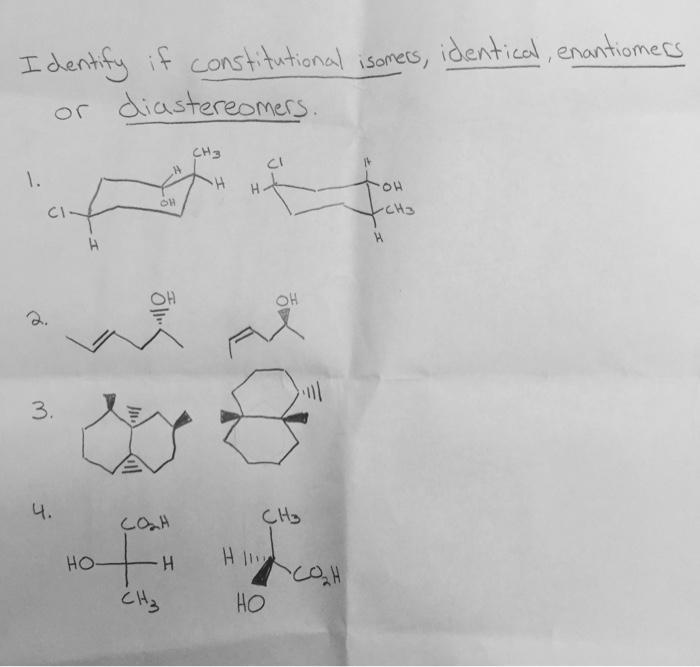 Identify if constitutional isomers, identical, enantiomers
or diastereomers.
1.
CH3
H
H
OH
Cl
H
Cl
H
H
OH
CH3
H
2.
OH
OH
3.
4.
CO2H
HO
H
CH3
CH3
H
CO2H
HO